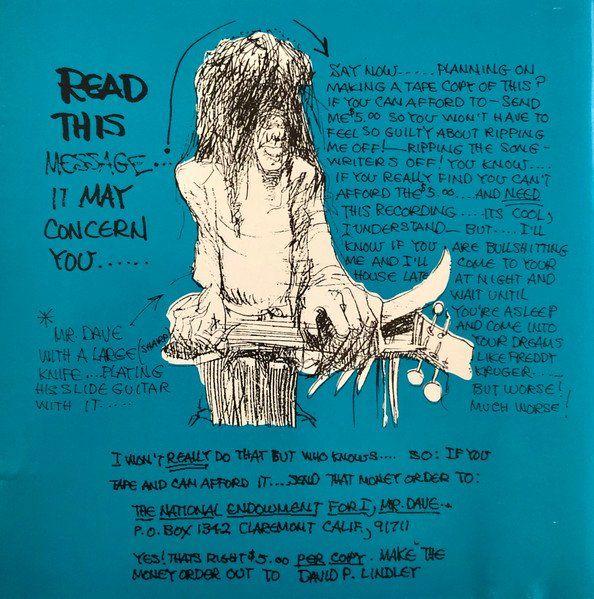 READ
THIS
MESSAGE...
IT MAY
CONCERN
YOU......
SAY NOW...... PLANNING ON
MAKING A TAPE COPY OF THIS?
IF YOU CAN AFFORD TO - SEND
ME $5.00 SO YOU WON'T HAVE TO
FEEL SO GUILTY ABOUT RIPPING
ME OFF! - RIPPING THE SONG-
WRITERS OFF! YOU KNOW....
IF YOU REALLY FIND YOU CAN'T
AFFORD THE $5.00 .... AND NEED
THIS RECORDING.... ITS COOL,
I UNDERSTAND - BUT..... I'LL
KNOW IF YOU ARE BULLSHITTING
ME AND I'LL COME TO YOUR
HOUSE LATE AT NIGHT AND
WAIT UNTIL
YOU'RE ASLEEP
AND COME INTO
YOUR DREAMS
LIKE FREDDY
KRUGER.....
BUT WORSE!
MUCH WORSE!
* MR. DAVE
WITH A LARGE (SHARP)
KNIFE.... PLAYING
HIS SLIDE GUITAR
WITH IT.....
I WON'T REALLY DO THAT BUT WHO KNOWS.... SO: IF YOU
TAPE AND CAN AFFORD IT....SEND THAT MONEY ORDER TO:
THE NATIONAL ENDOWMENT FOR I, MR. DAVE...
P.O. BOX 1342 CLAREMONT CALIF, 91711
YES! THATS RIGHT $5.00 PER COPY. MAKE THE
MONEY ORDER OUT TO DAVID P. LINDLEY